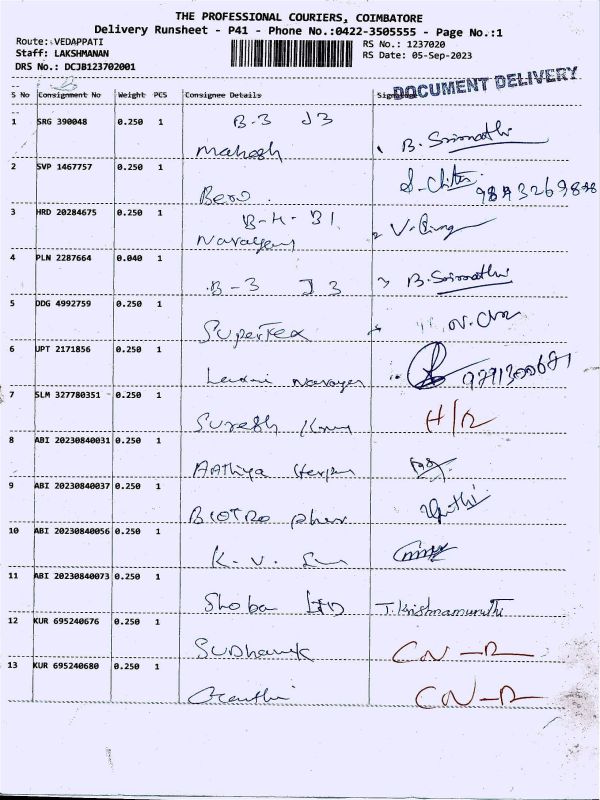 THE PROFESSIONAL COURIERS, COIMBATORE
Delivery Runsheet - P41 - Phone No.:0422-3505555 - Page No.:1
Route: VEDAPPATI
Staff: LAKSHMANAN
DRS No.: DCJB123702001
RS No.: 1237020
RS Date: 05-Sep-2023
DOCUMENT DELIVERY
S No Consignment No Weight PCS Consignee Details
1 SRG 390048 0.250 1 B-3 J3
Mahesh B. Srimathi
2 SVP 1467757 0.250 1
S. Chitra
3 HRD 20284675 0.250 1
Narayan
4 PLN 2287664 0.040 1 B-3 J3 B. Srimathi
5 DDG 4992759 0.250 1
SuperTex
6 UPT 2171856 0.250 1
7 SLM 327780351 0.250 1
Suresh H/R
8 ABI 20230840031 0.250 1
Aathiya
9 ABI 20230840037 0.250 1
10 ABI 20230840056 0.250 1
K. V.
11 ABI 20230840073 0.250 1
Shoba LTD T. Krishnamurthi
12 KUR 695240676 0.250 1
CN-R
13 KUR 695240680 0.250 1
CN-R